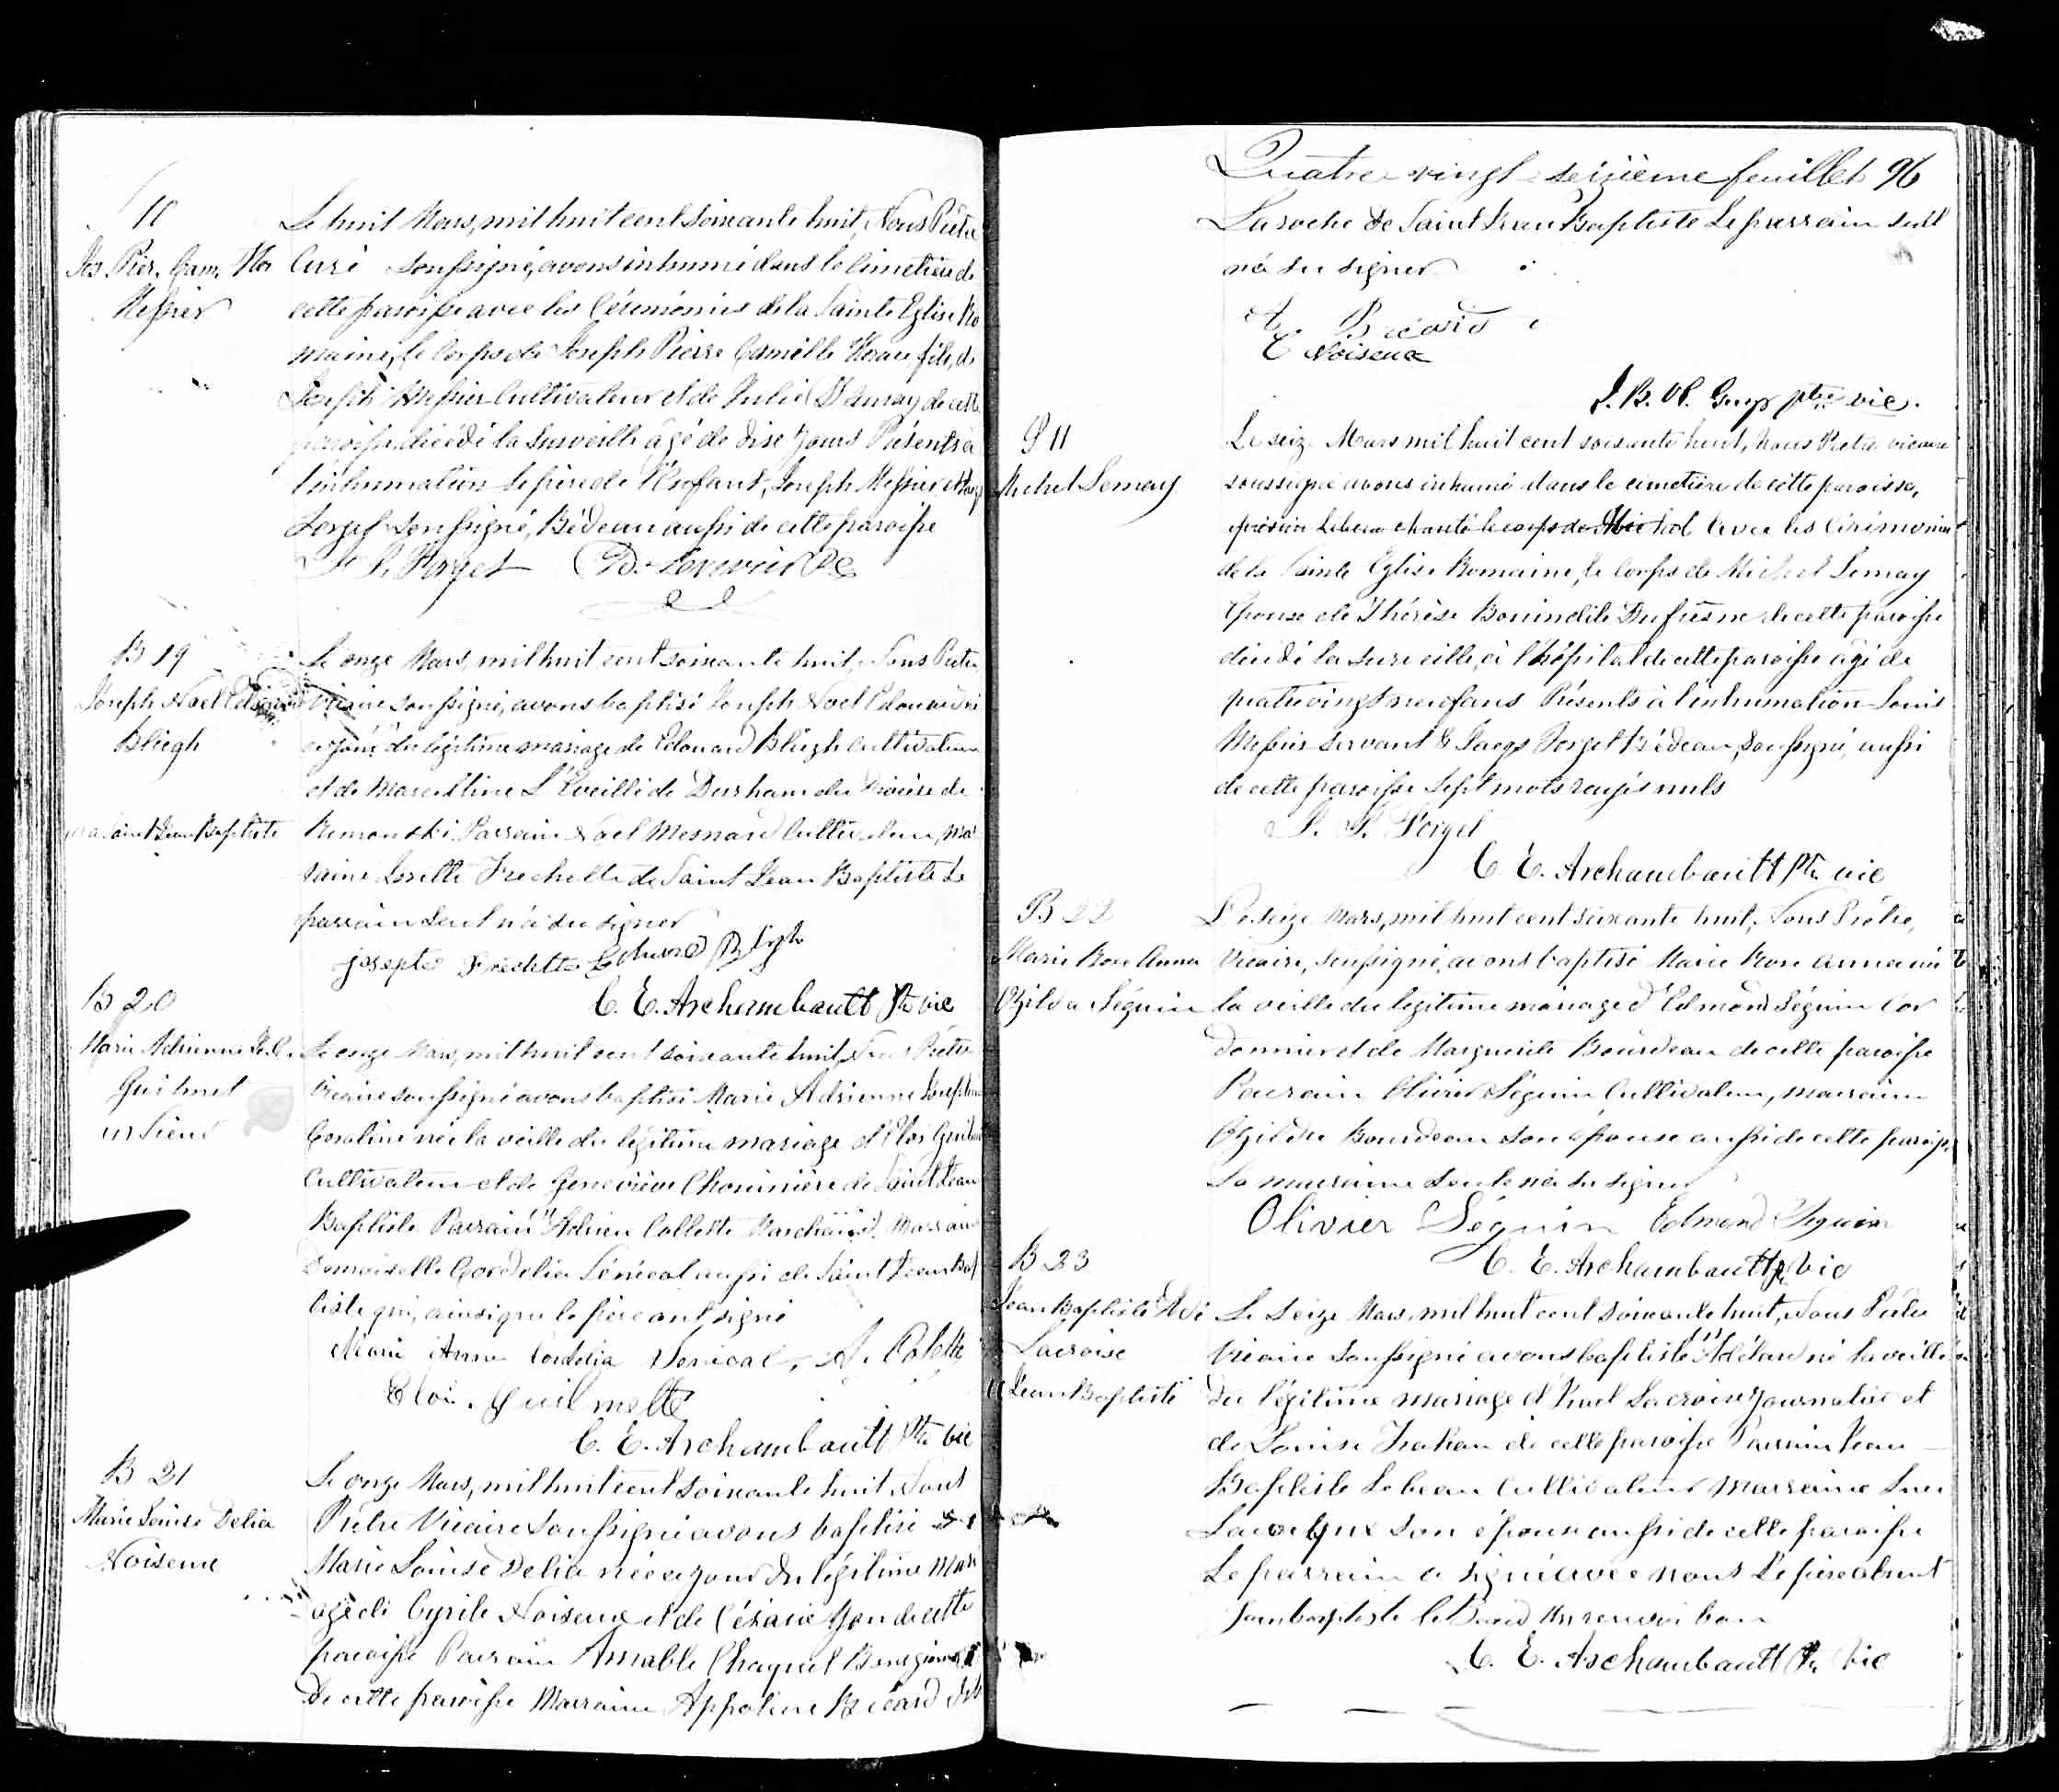 Jos. Pier. Cam. Hor
Messier
Le huit Mars, mil huit cent soixante huit, Nous Prêtre
Curé soussigné, avons inhumé dans le cimetière de
cette paroisse avec les Cérémonies de la Sainte Eglise Ro
maine, le Corps de Joseph Pierre Camille fils, de
Joseph Messier Cultivateur et de Julie de cette
paroisse décédé la surveille âgé de dix jours Présents à
l'inhumation le père de l'Enfant, Joseph Messier et
Forget soussigné, Bédeau aussi de cette paroisse
Forget
B 19
Joseph Noel
Bliegh
Saint Jean Baptiste
Le onze Mars, mil huit cent soixante huit, Nous Prêtre
Vicaire soussigné, avons baptisé Joseph Noel Edouard né
ce jour du légitime mariage de Edouard Bliegh Cultivateur
et de Marcelline L'Eveillé de Durham du Diocèse de
Parrain Noel Mesnard Cultivateur, Mar
raine Josette Frechette de Saint Jean Baptiste Le
parrain seul n'a su signer
josepte Frechette Edward Bligh
C. E. Archambault Ptre vic
B 20
Marie Adrienne
Guilmet
Le onze Mars, mil huit cent soixante huit, Nous Prêtre
Vicaire soussigné avons baptisé Marie Adrienne
née la veille du légitime mariage d'Eloi
Cultivateur et de Geneviève de Saint Jean
Baptiste Parrain Adrien Collette Marchand, Marraine
Demoiselle Cordelia Sénécal aussi de Saint Jean Bap
tiste qui, ainsi que le père ont signé
Marie Anne Cordelia Senécal, A. Colette
Eloi Guilmette
C. E. Archambault Ptre vic
B 21
Marie Louise Delia
Noiseux
Le onze Mars, mil huit cent soixante huit Nous
Prêtre Vicaire soussigné avons baptisé
Marie Louise Delia née ce jour du légitime Mari
age de Cyrile Noiseux et de Césarie Yon de cette
paroisse Parrain Amable Choquet
de cette paroisse Marraine Appoline Bricard
Quatre-vingt-seizième feuillet 96
Laroche de Saint Jean Baptiste Le parrain seul
n'a su signer
A Bricard
C Noiseux
J. B. ptre vic.
S 11
Michel Lemay
Le seize Mars mil huit cent soixante huit, nous Prêtre vicaire
soussigné avons inhumé dans le cimetière de cette paroisse,
Libera chanté le corps de Michel Avec les Cérémonies
de la Sainte Eglise Romaine, le Corps de Michel Lemay
Epoux de Thérèse Bonin dite Dufresne de cette paroisse
décédé la surveille, à l'hôpital de cette paroisse âgé de
quatre vingt neuf ans Présents à l'inhumation Louis
Messier servant & Jacqs Forget Bédeau, soussigné, aussi
de cette paroisse Sept mots rayés nuls
Forget
C. E. Archambault Ptre vic
B 22
Marie Rose Anna
Ozilda Séguin
Le seize Mars, mil huit cent soixante huit, Nous Prêtre,
Vicaire, soussigné, avons baptisé Marie Rose Anna née
la veille du légitime mariage d'Edmond Séguin Cor
donnier et de Marguerite Bourdeau de cette paroisse
Parrain Olivier Séguin Cultivateur, marraine
Ozilda Bourdeau son épouse aussi de cette paroisse
La marraine seule n'a su signer
Olivier Séguin Edmond Seguin
C. E. Archambault Ptre vic
B 23
Jean Baptiste
Lacroix
Jean Baptiste
Le seize Mars, mil huit cent soixante huit, Nous Prêtre
Vicaire soussigné avons baptisé né la veille
du légitime mariage d' Lacroix Journalier et
de Louise de cette paroisse Parrain Jean
Baptiste Lebeau Cultivateur Marraine
son épouse aussi de cette paroisse
Le parrain a signé avec nous Le père absent
Jeanbaptiste Un renvoi bon
C. E. Archambault Ptre Vic